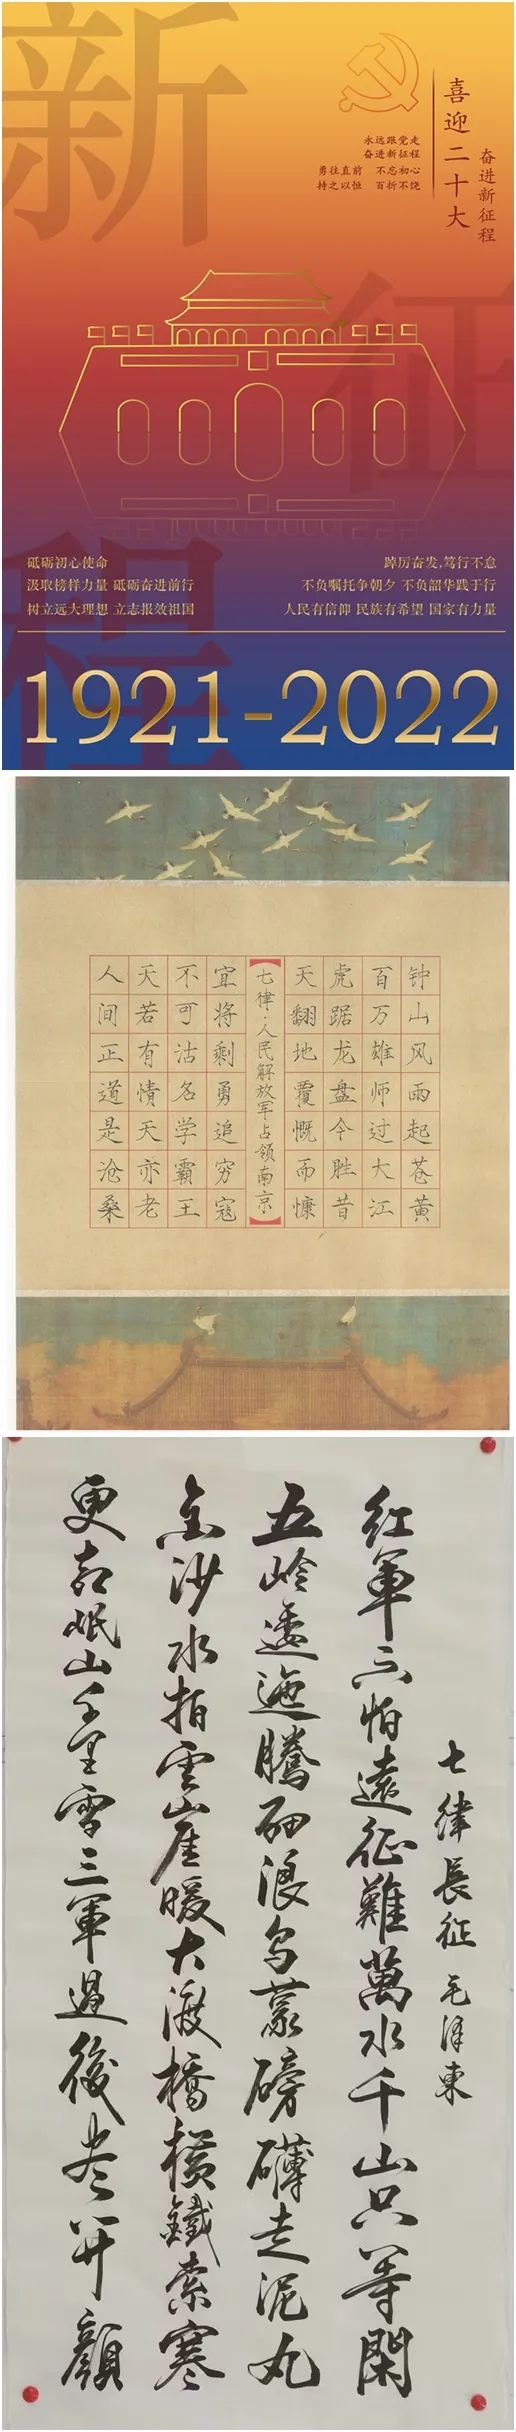 新
征
程
喜迎二十大
奋进新征程
永远跟党走
奋进新征程
勇往直前 不忘初心
持之以恒 百折不饶
砥砺初心使命
汲取榜样力量 砥砺奋进前行
树立远大理想 立志报效祖国
踔厉奋发,笃行不怠
不负嘱托争朝夕 不负韶华践于行
人民有信仰 民族有希望 国家有力量
1921-2022
钟山风雨起苍黄
百万雄师过大江
虎踞龙盘今胜昔
天翻地覆慨而慷
【七律·人民解放军占领南京】
宜将剩勇追穷寇
不可沽名学霸王
天若有情天亦老
人间正道是沧桑
七律長征 毛泽東
红軍不怕遠征難萬水千山只等閑
五岭逶迤騰细浪乌蒙磅礴走泥丸
金沙水拍雲崖暖大渡橋横鐵索寒
更喜岷山千里雪三軍過後尽开顏